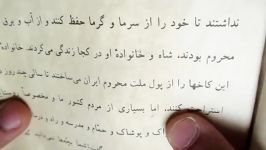 نداشتند تا خود را از سرما و گرما حفظ کنند و از آب و برق
محروم بودند، شاه و خانوادهٔ او در کجا زندگی می‌کردند. خانوادهٔ
این کاخها را از پول ملت محروم ایران می‌ساختند تا سالی چند روز در
استراحت کنند. اما بسیاری از مردم کشور ما و مخصوصاً
اک و پوشاک و حمّام و مدرسه و راه و